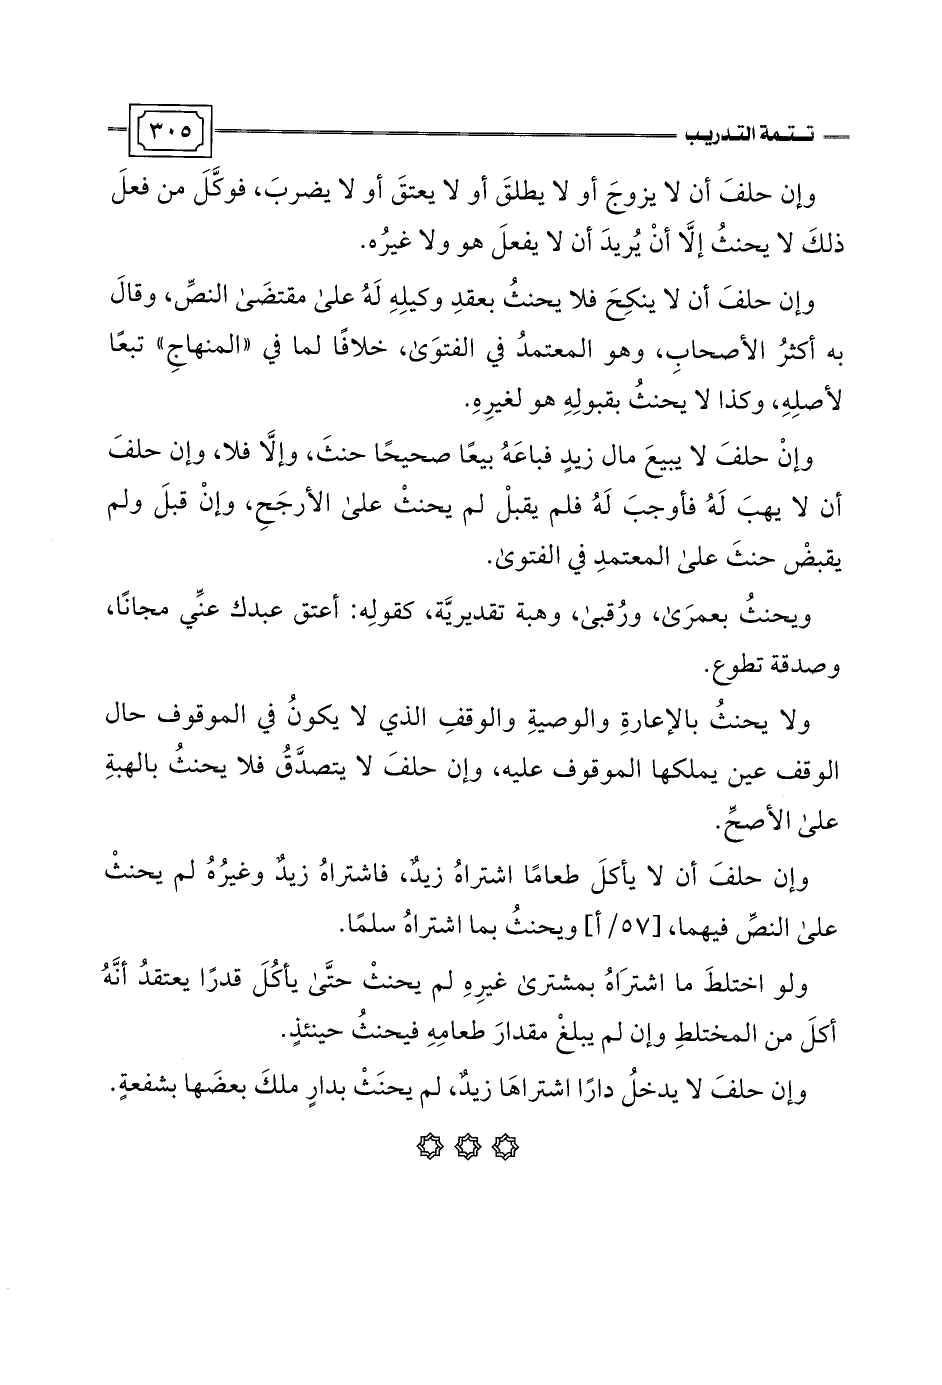 تتمة التدريب
٣٠٥
وإن حلفَ أن لا يزوجَ أو لا يطلقَ أو لا يعتقَ أو لا يضربَ، فوكَّلَ من فعلَ
ذلكَ لا يحنثُ إلَّا أنْ يُريدَ أن لا يفعلَ هو ولا غيرُه.
وإن حلفَ أن لا ينكِحَ فلا يحنثُ بعقدِ وكيلِهِ لَهُ علىٰ مقتضَىٰ النصِّ، وقالَ
به أكثرُ الأصحابِ، وهو المعتمدُ في الفتوَىٰ، خلافًا لما في «المنهاجِ» تبعًا
لأصلِهِ، وكذا لا يحنثُ بقبولِهِ هو لغيرِهِ.
وإنْ حلفَ لا يبيعَ مال زيدٍ فباعَهُ بيعًا صحيحًا حنثَ، وإلَّا فلا، وإن حلفَ
أن لا يهبَ لَهُ فأوجبَ لَهُ فلم يقبلْ لم يحنثْ علىٰ الأرجَحِ، وإنْ قبلَ ولم
يقبضْ حنثَ علىٰ المعتمدِ في الفتوىٰ.
ويحنثُ بعمرَىٰ، ورُقبىٰ، وهبة تقديريَّة، كقولِه: أعتق عبدك عنِّي مجانًا،
وصدقة تطوع.
ولا يحنثُ بالإعارةِ والوصيةِ والوقفِ الذي لا يكونُ في الموقوف حال
الوقف عين يملكها الموقوف عليه، وإن حلفَ لا يتصدَّقُ فلا يحنثُ بالهبةِ
علىٰ الأصحِّ.
وإن حلفَ أن لا يأكلَ طعامًا اشتراهُ زيدٌ، فاشتراهُ زيدٌ وغيرُهُ لم يحنثْ
علىٰ النصِّ فيهما، [٥٧/ أ] ويحنثُ بما اشتراهُ سلمًا.
ولو اختلطَ ما اشترَاهُ بمشترىٰ غيرِهِ لم يحنثْ حتَّىٰ يأكُلَ قدرًا يعتقدُ أنَّهُ
أكلَ من المختلطِ وإن لم يبلغْ مقدارَ طعامِهِ فيحنثُ حينئذٍ.
وإن حلفَ لا يدخلُ دارًا اشتراهَا زيدٌ، لم يحنَثْ بدارٍ ملكَ بعضَها بشفعةٍ.